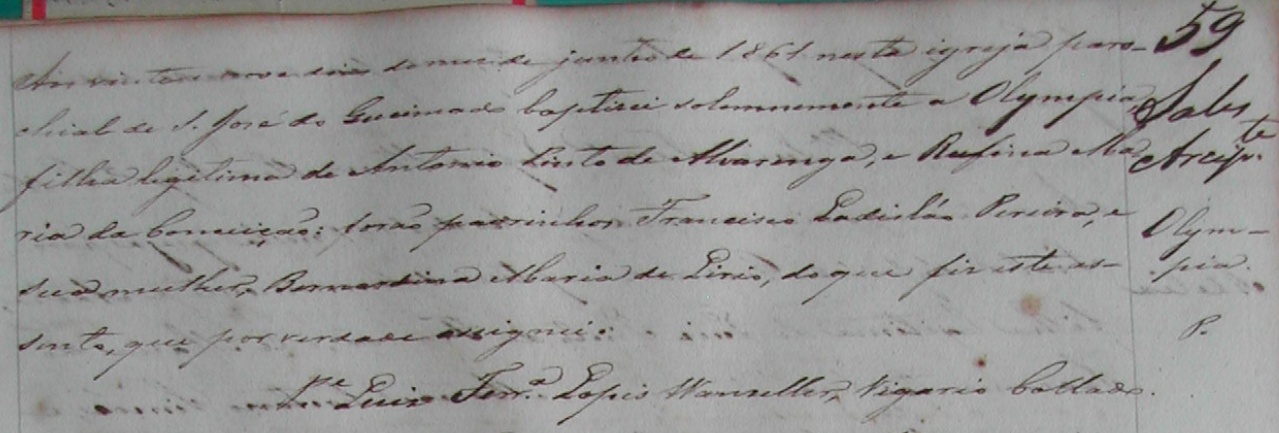 Aos vinte e nove dias do mes de junho de 1861 nesta igreja paro-
chial de S. José do Queimado baptizei solemnemente a Olympia,
filha legitima de Antonio Pinto de Alvarenga, e Rufina Ma
ria da Conceição: forão padrinhos Francisco Ladisláo Pereira, e
sua mulher, Bernardina Maria de Lirio, do que fiz este as-
sento, que por verdade assignei.
Pe Luiz Ferr.a Lopes Wanzeller, Vigario Collado.
59
Olym-
pia.
P.